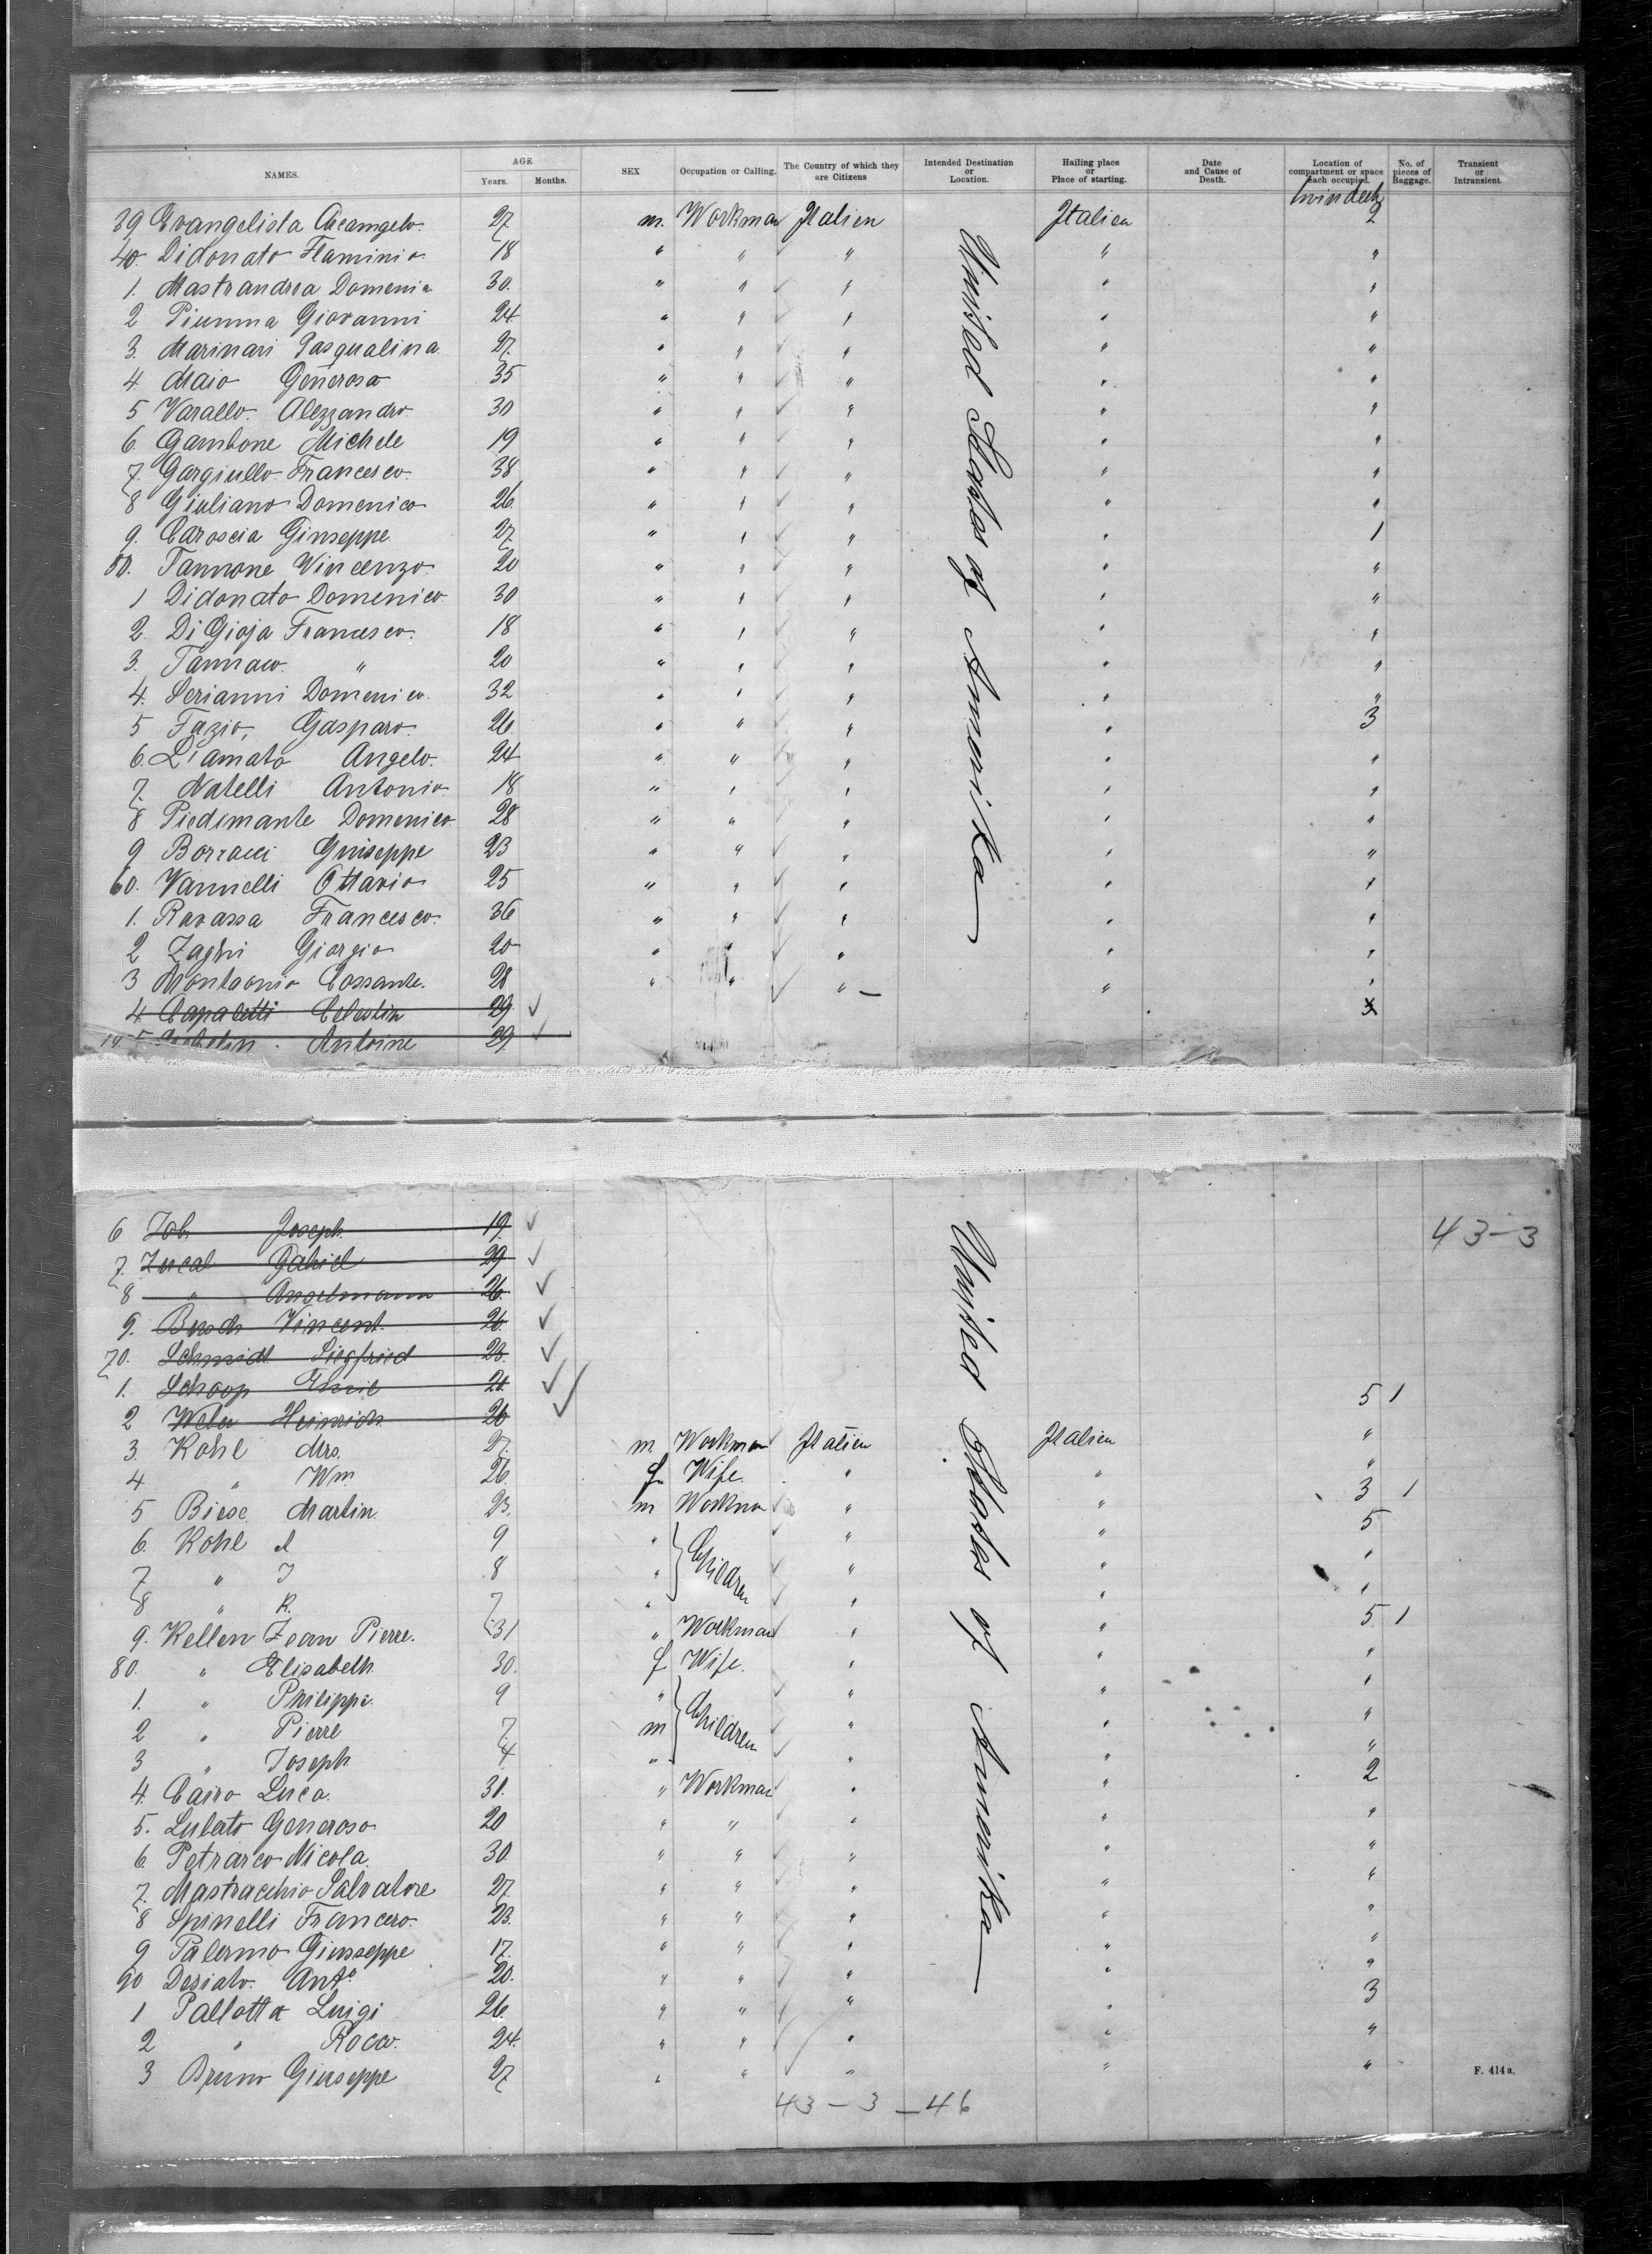 NAMES. AGE Years. Months. SEX Occupation or Calling. The Country of which they are Citizens Intended Destination or Location. Hailing place or Place of starting. Date and Cause of Death. Location of compartment or space each occupied. No. of pieces of Baggage. Transient or Intransient.
39 Evangelista Arcangelo. 27 m. Workman Italien Italien 2
United States of Amerika
40. Didonato Flaminio 18 " " " " "
1. Mastrandrea Domenic 30. " " " " "
2 Piumma Giovanni 24 " " " " "
3. Marinari Pasqualina 27. " " " " "
4. Maio Generosa 35 " " " " "
5 Varallo. Alezzandro 30 " " " " "
6. Gambone Michele 19 " " " " "
7. Gargiullo Francesco. 38 " " " " "
8 Giuliano Domenico 26. " " " " "
9. Caroscia Giuseppe. 27 " " " " 1
50. Tannone Vincenzo. 20 " " " " "
1 Didonato Domenico. 30 " " " " "
2. Di Gioja Francesco. 18 " " " " "
3. " 20 " " " " "
4. Serianni Domenico. 32 " " " " "
5 Fazio, Gasparo. 26. " " " " 3
6. D'amato Angelo. 24 " " " " "
7. Natelli Antonio 18 " " " " "
8 Piedimante Domenico. 28 " " " " "
9 Borracci Giuseppe 23 " " " " "
60. Vannelli Ottavio 25 " " " " "
1. Ravassa Francesco. 36 " " " " "
2 Zaghi Giorgio 20 " " " " "
3 28 " " " " "
4. Capaletti Celestin 29
5 Antoine 29.
6 Joseph 19. 43-3
7. Zucal Gabriel 29
8 " Angelmann 26.
9. Vincent. 26.
70. Schmidt Siegfried 23.
1. Schoop Emil 21. 5 1
2 Weber Heinrich 26 "
3. Kohl Mrs. 27. m. Workman Italien Italien "
United States of Amerika
4 " Wm 26. f. Wife. " " 3 1
5 Biese Martin 23. m Workman " " 5
6. Kohl 9 " Children " " "
7 " J 8 " " " "
8 " K. 7 " " " 5 1
9. Kellen Jean Pierre. 31 " Workman " " "
80. " Elisabeth. 30. f. Wife. " " "
1. " Philippe. 9 " Children " " "
2 " Pierre 7. m " " "
3 " Joseph 4 " " " 2
4. Cairo Luca. 31. " Workman " " "
5. Luberto Generoso 20 " " " " "
6. Petrarco Nicola. 30 " " " " "
7. Mastracchio Salvatore 27 " " " " "
8 Spinelli Francero. 23. " " " " "
9 Palermo Giusseppe 17. " " " " "
90 Desiato. Anto 20. " " " " 3
1 Pallotta Luigi 26. " " " " "
2 " Rocco. 24. " " " " "
3 Bruno Giuseppe 27 " " " "
F. 414a.
43-3-46